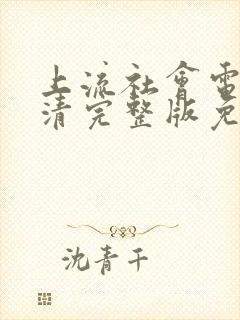 上流社會電
清完整版免
沈青干